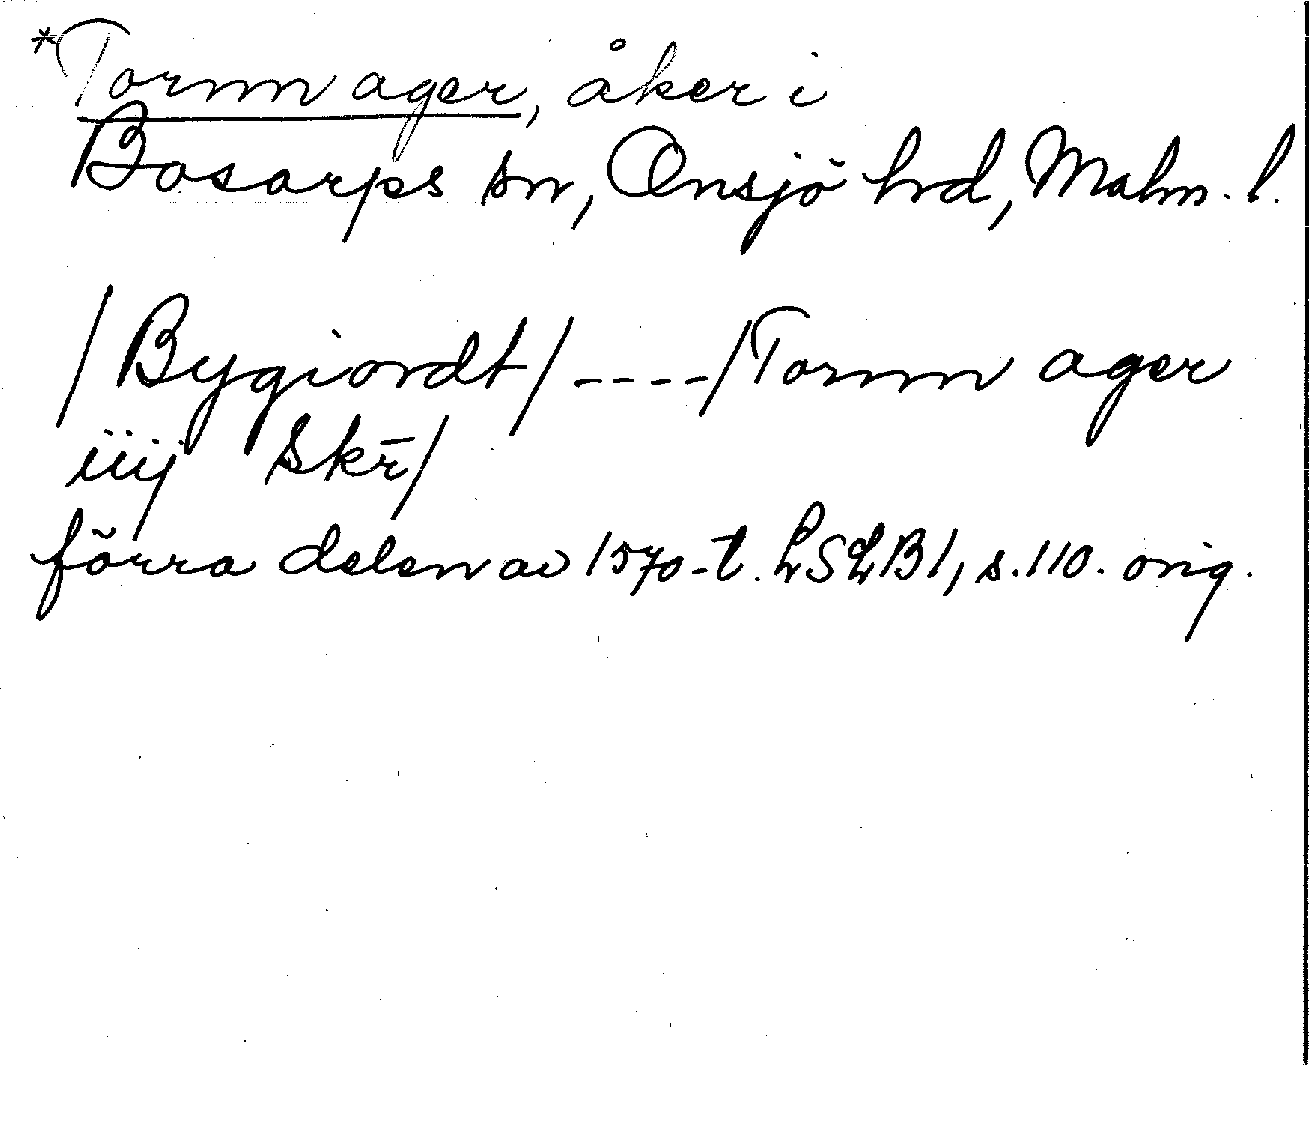 *Tornn ager, åker i
Bosarps sn, Onsjö hrd, Malm. l.
/Bygiordt/ ---- /Tornn ager
iiij skr̄/
förra delen av 1570-t. LSLB1, s. 110. orig.